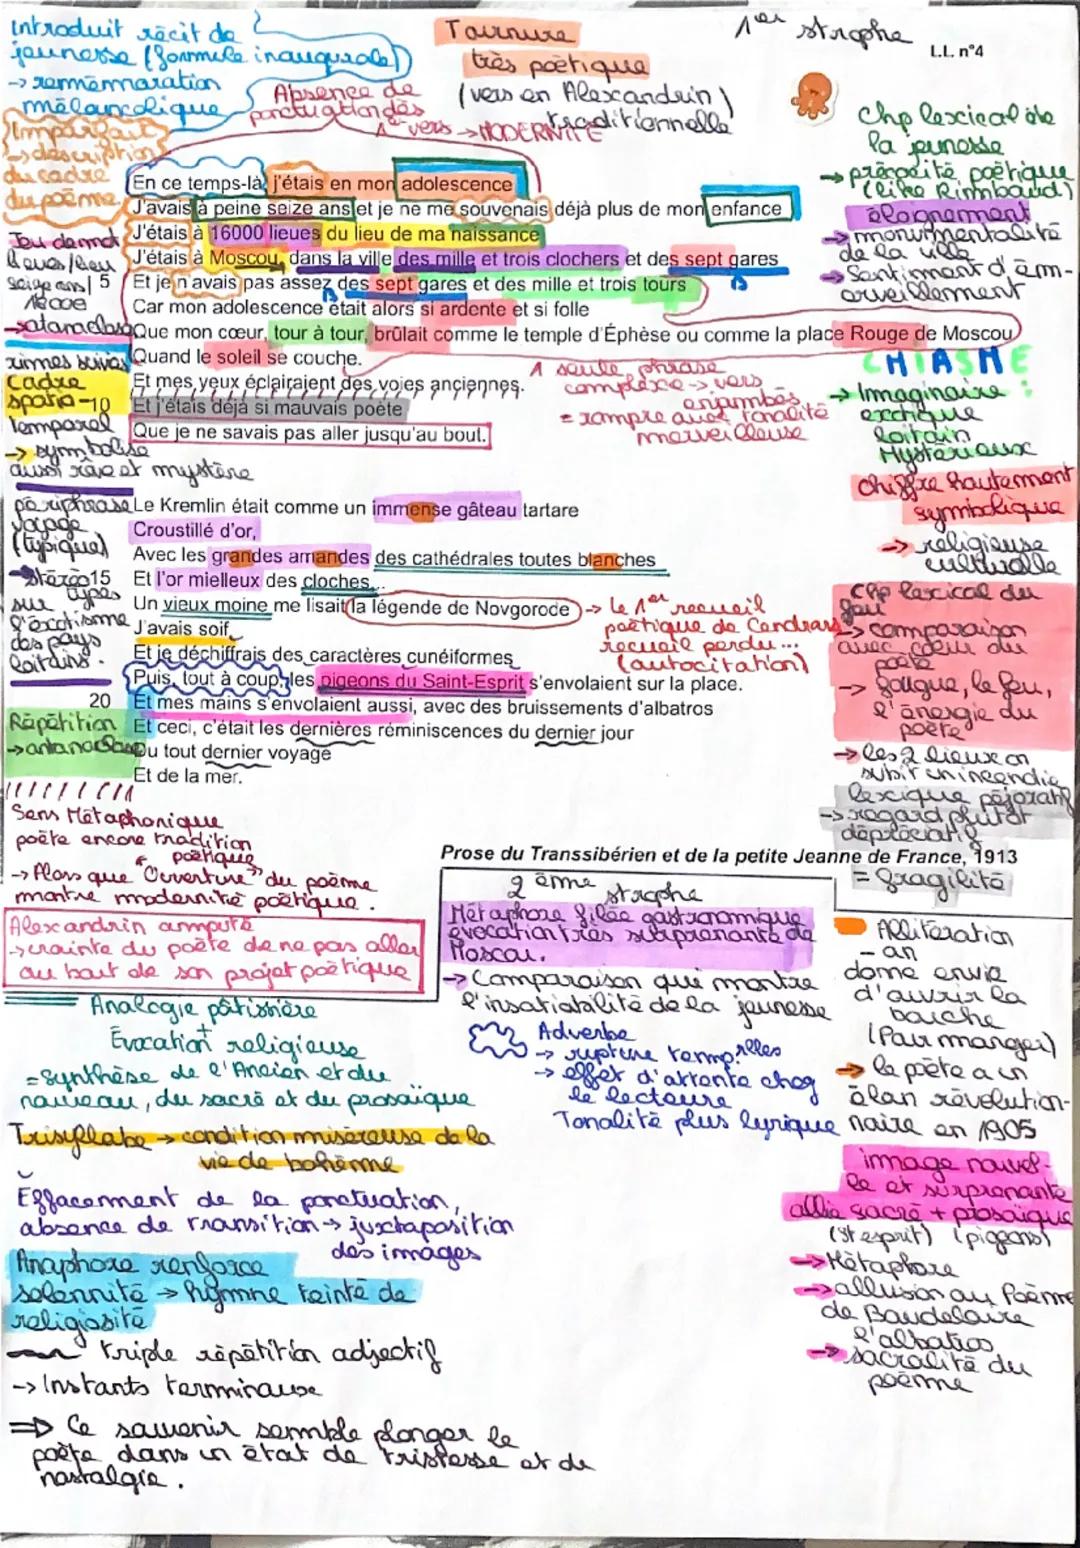 Introduit récit de
jeunesse (formule inaugurale)
-> remémoration
mélancolique
Tournure
très poétique
(vers en Alexandrin)
traditionnelle
1ère strophe
L.L. n°4
Absence de
ponctuation dès
1er vers -> MODERNITÉ
Imparfait
-> description
du cadre
du poème
Chp lexical de
la jeunesse
-> précocité poétique
(like Rimbaud)
éloignement
-> monumentalité
de la ville
-> Sentiment d'ém-
erveillement
En ce temps-là, j'étais en mon adolescence
J'avais à peine seize ans et je ne me souvenais déjà plus de mon enfance
J'étais à 16000 lieues du lieu de ma naissance
J'étais à Moscou, dans la ville des mille et trois clochers et des sept gares
5 Et je n'avais pas assez des sept gares et des mille et trois tours
Car mon adolescence était alors si ardente et si folle
Que mon cœur, tour à tour, brûlait comme le temple d'Éphèse ou comme la place Rouge de Moscou
Quand le soleil se couche.
Et mes yeux éclairaient des voies anciennes.
10 Et j'étais déjà si mauvais poète
Que je ne savais pas aller jusqu'au bout.
Jeu de mot
lieues/lieu
seize ans/
16000
-> antanaclase
rimes suivies
Cadre
spatio-
temporel
-> symbolise
aussi rêve et mystère
1 seule phrase
complexe -> vers
enjambés
= rompre avec tonalité
merveilleuse
CHIASME
-> Imaginaire :
exotique
lointain
Mystérieux
chiffre hautement
symbolique
-> religieuse
culturelle
périphrase
voyage
(typique)
-> stéréo
types
sur
l'exotisme
des pays
lointains.
Le Kremlin était comme un immense gâteau tartare
Croustillé d'or,
Avec les grandes amandes des cathédrales toutes blanches
15 Et l'or mielleux des cloches...
Un vieux moine me lisait la légende de Novgorode
J'avais soif
Et je déchiffrais des caractères cunéiformes
Puis, tout à coup, les pigeons du Saint-Esprit s'envolaient sur la place.
20 Et mes mains s'envolaient aussi, avec des bruissements d'albatros
Et ceci, c'était les dernières réminiscences du dernier jour
Du tout dernier voyage
Et de la mer.
-> Le 1er recueil
poétique de Cendrars
recueil perdu...
(autocitation)
Chp lexical du
feu
-> comparaison
avec cœur du
poète
-> fougue, le feu,
l'énergie du
poète
-> les 2 lieux on
subit un incendie
lexique péjoratif
-> regard plutôt
dépréciatif
= fragilité
Répétition
-> antanaclase
Sens Métaphorique
poète encore tradition
poétique
-> Alors que "Ouverture" du poème
montre modernité poétique.
Alexandrin amputé
-> crainte du poète de ne pas aller
au bout de son projet poétique
Prose du Transsibérien et de la petite Jeanne de France, 1913
2ème strophe
Métaphore filée gastronomique
évocation très surprenante de
Moscou.
-> Comparaison qui montre
l'insatiabilité de la jeunesse
Adverbe
-> rupture temp.elles
-> effet d'attente chez
le lecteure
Tonalité plus lyrique
Allitération
- an
dome envie
d'ouvrir la
bouche
(Pour manger)
-> le poète a un
élan révolution-
naire en 1905
Analogie pâtissière
+
Évocation religieuse
= Synthèse de l'Ancien et du
nouveau, du sacré et du prosaïque
Trisyllabe -> condition miséreuse de la
vie de bohème
Effacement de la ponctuation,
absence de transition -> juxtaposition
des images
Anaphore renforce
solennité -> hymne teinté de
religiosité
triple répétition adjectif
-> Instants terminaux
=> Ce souvenir semble plonger le
poète dans un état de tristesse et de
nostalgie.
image nouvel-
le et surprenante
allie sacré + prosaïque
(St esprit) (pigeons)
-> Métaphore
-> allusion au Poème
de Baudelaire
l'albatros
-> sacralité du
poème